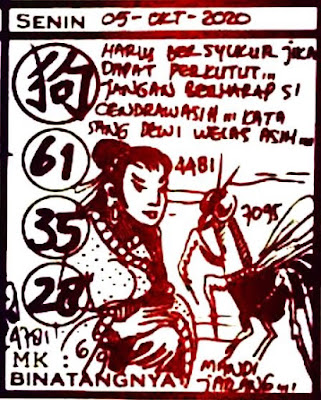 SENIN 05-OKT-2020
狗
HARUS BERSYUKUR JIKA
DAPAT PERKUTUT...
JANGAN BERHARAP SI
CENDRAWASIH... KATA
SANG DEWI WELAS ASIH...
61
4481
35
7095
28
4781
MK : 69
MANDI
BINATANGNYA:
JARANG...